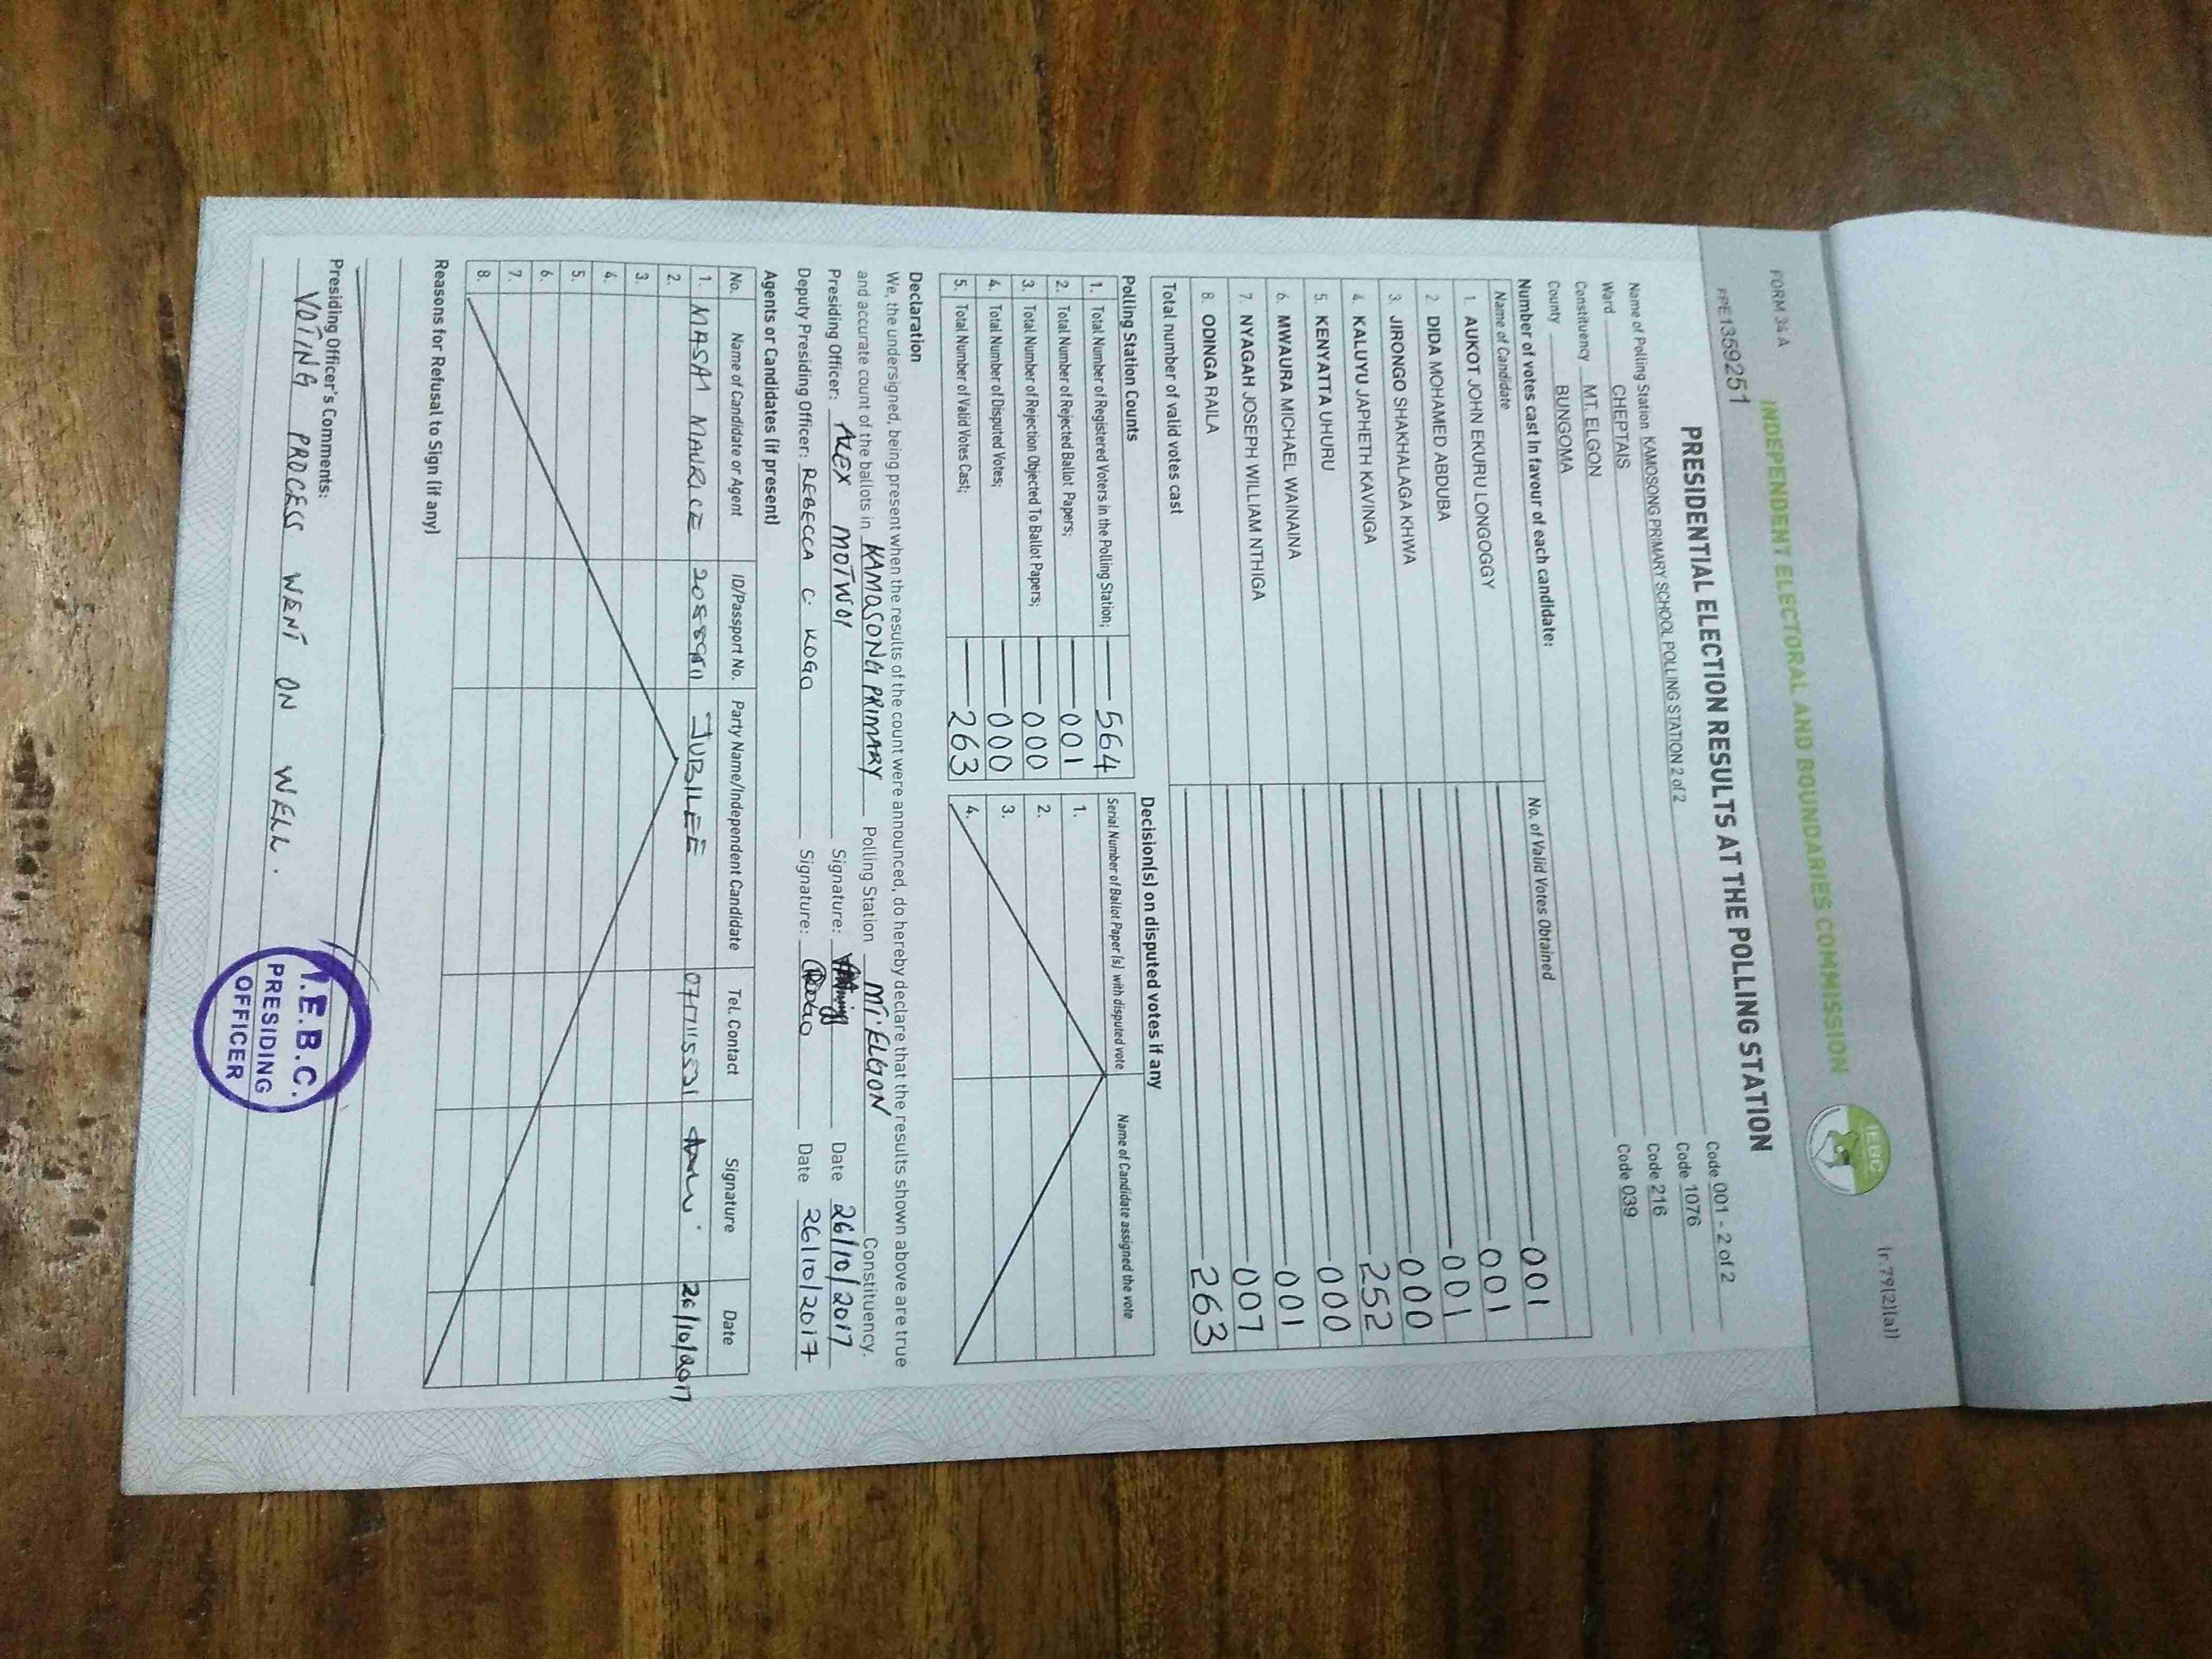 FORM 34 A
(r.79(2)(a))
INDEPENDENT ELECTORAL AND BOUNDARIES COMMISSION
IEBC
FPE1359251
PRESIDENTIAL ELECTION RESULTS AT THE POLLING STATION
Name of Polling Station KAMOSONG PRIMARY SCHOOL POLLING STATION 2 of 2 Code 001 - 2 of 2
Ward CHEPTAIS Code 1076
Constituency MT. ELGON Code 216
County BUNGOMA Code 039
Number of votes cast in favour of each candidate:
Name of Candidate No. of Valid Votes Obtained
1. AUKOT JOHN EKURU LONGOGGY 001
2 DIDA MOHAMED ABDUBA 001
3. JIRONGO SHAKHALAGA KHWA 001
4. KALUYU JAPHETH KAVINGA 000
5. KENYATTA UHURU 252
6. MWAURA MICHAEL WAINAINA 000
7. NYAGAH JOSEPH WILLIAM NTHIGA 001
8. ODINGA RAILA 007
Total number of valid votes cast 263
Polling Station Counts
1. Total Number of Registered Voters in the Polling Station; 564
2. Total Number of Rejected Ballot Papers; 001
3. Total Number of Rejection Objected To Ballot Papers; 000
4. Total Number of Disputed Votes; 000
5. Total Number of Valid Votes Cast; 263
Decision(s) on disputed votes if any
Serial Number of Ballot Paper (s) with disputed vote Name of Candidate assigned the vote
1.
2.
3.
4.
Declaration
We, the undersigned, being present when the results of the count were announced, do hereby declare that the results shown above are true
and accurate count of the ballots in KAMOSONG PRIMARY Polling Station MT ELGON Constituency.
Presiding Officer: ALEX MOTWOI Signature: Date 26/10/2017
Deputy Presiding Officer: REBECCA C. KOGO Signature: Date 26/10/2017
Agents or Candidates (if present)
No. Name of Candidate or Agent ID/Passport No. Party Name/Independent Candidate Tel. Contact Signature Date
1. MASAI MAURICE JUBILEE 26/10/2017
2.
3.
4.
5.
6.
7.
8.
Reasons for Refusal to Sign (if any)
Presiding Officer's Comments:
VOTING PROCESS WENT ON WELL.
I.E.B.C.
PRESIDING
OFFICER